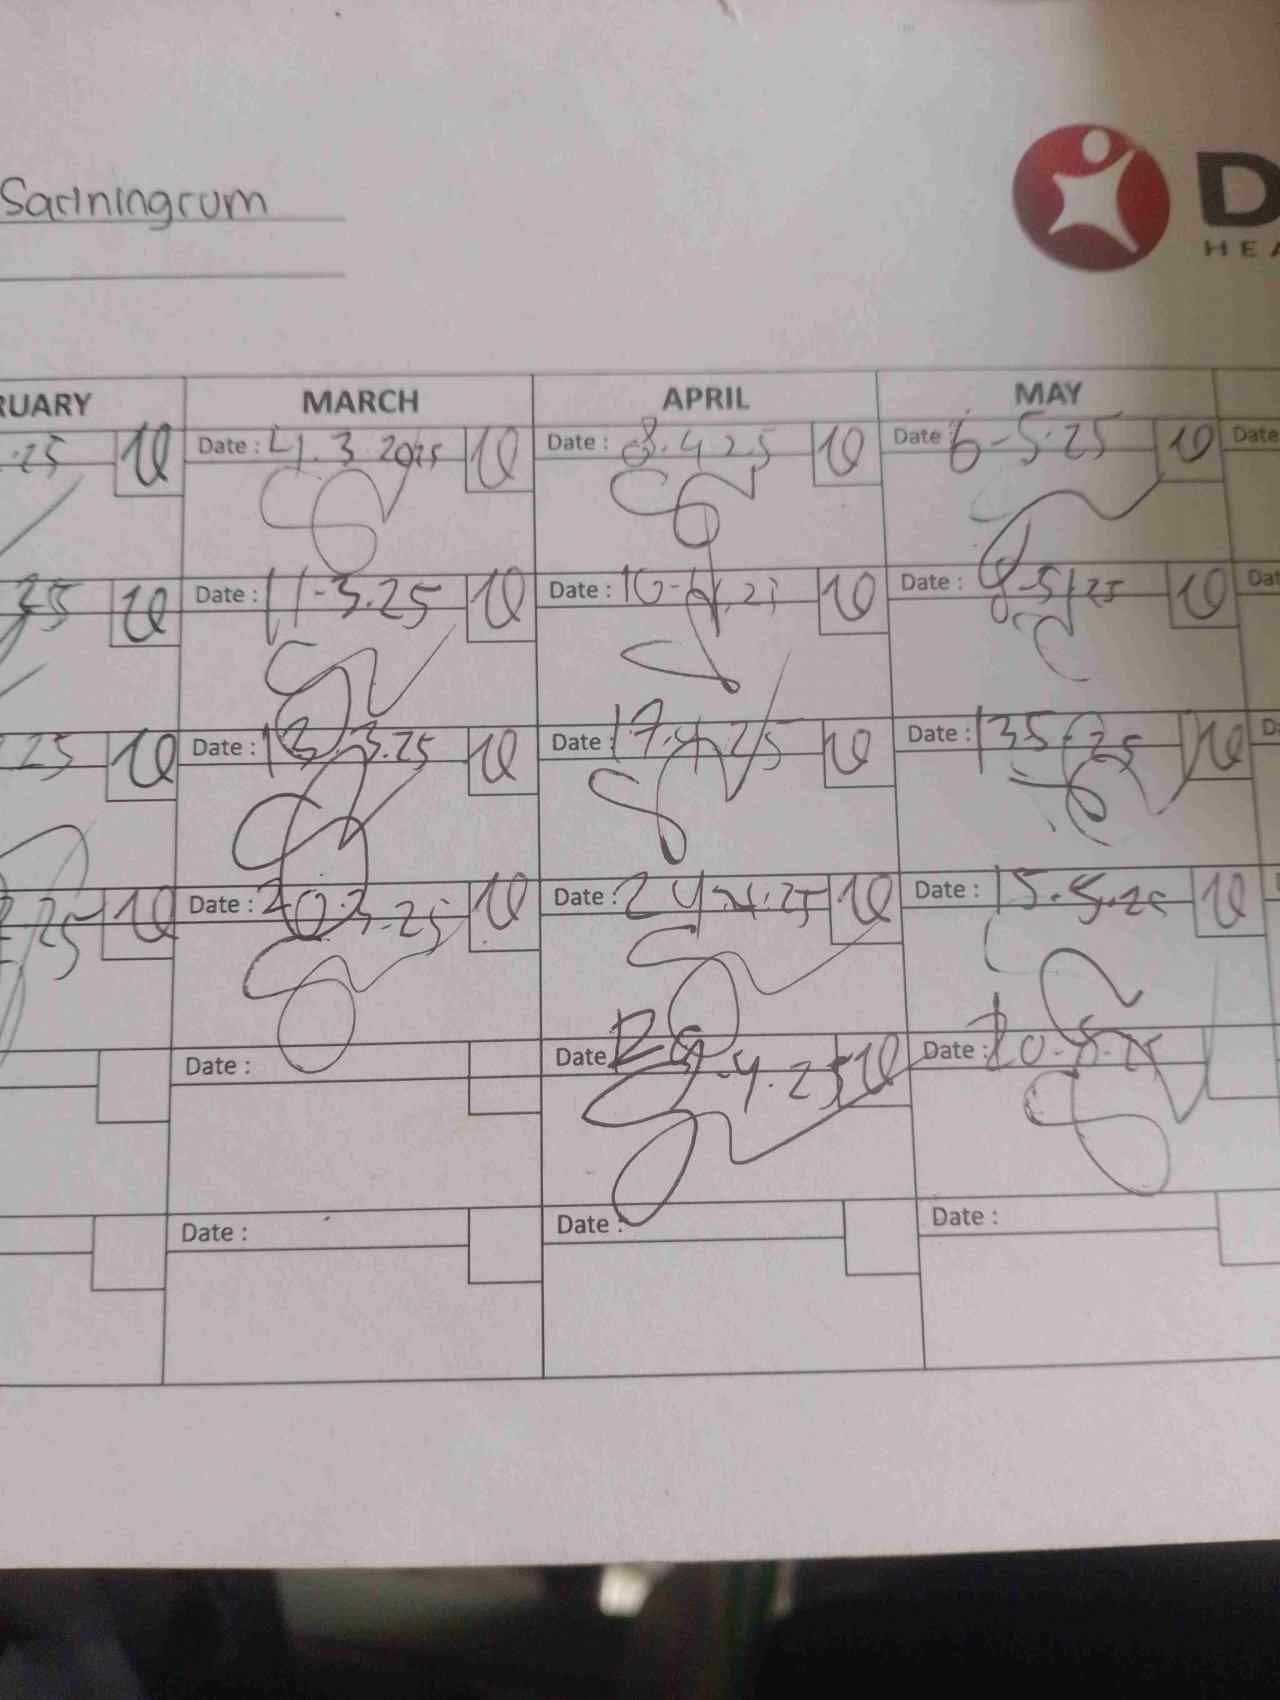 Sariningrum
D
HEA
RUARY MARCH APRIL MAY
.25 10 Date : 4.3.2025 10 Date : 8.4.25 10 Date : 6-5-25 10 Date
25 10 Date : 11-3.25 10 Date : 10-4.25 10 Date : 8-5-25 10 Dat
.25 10 Date : 13.3.25 10 Date : 17.4.25 10 Date : 13 5-25 10 D
.25 10 Date : 20.3.25 10 Date : 24.4.25 10 Date : 15.5.25 10 D
Date : Date -4.25 10 Date : 20-5-25
Date : Date : Date :